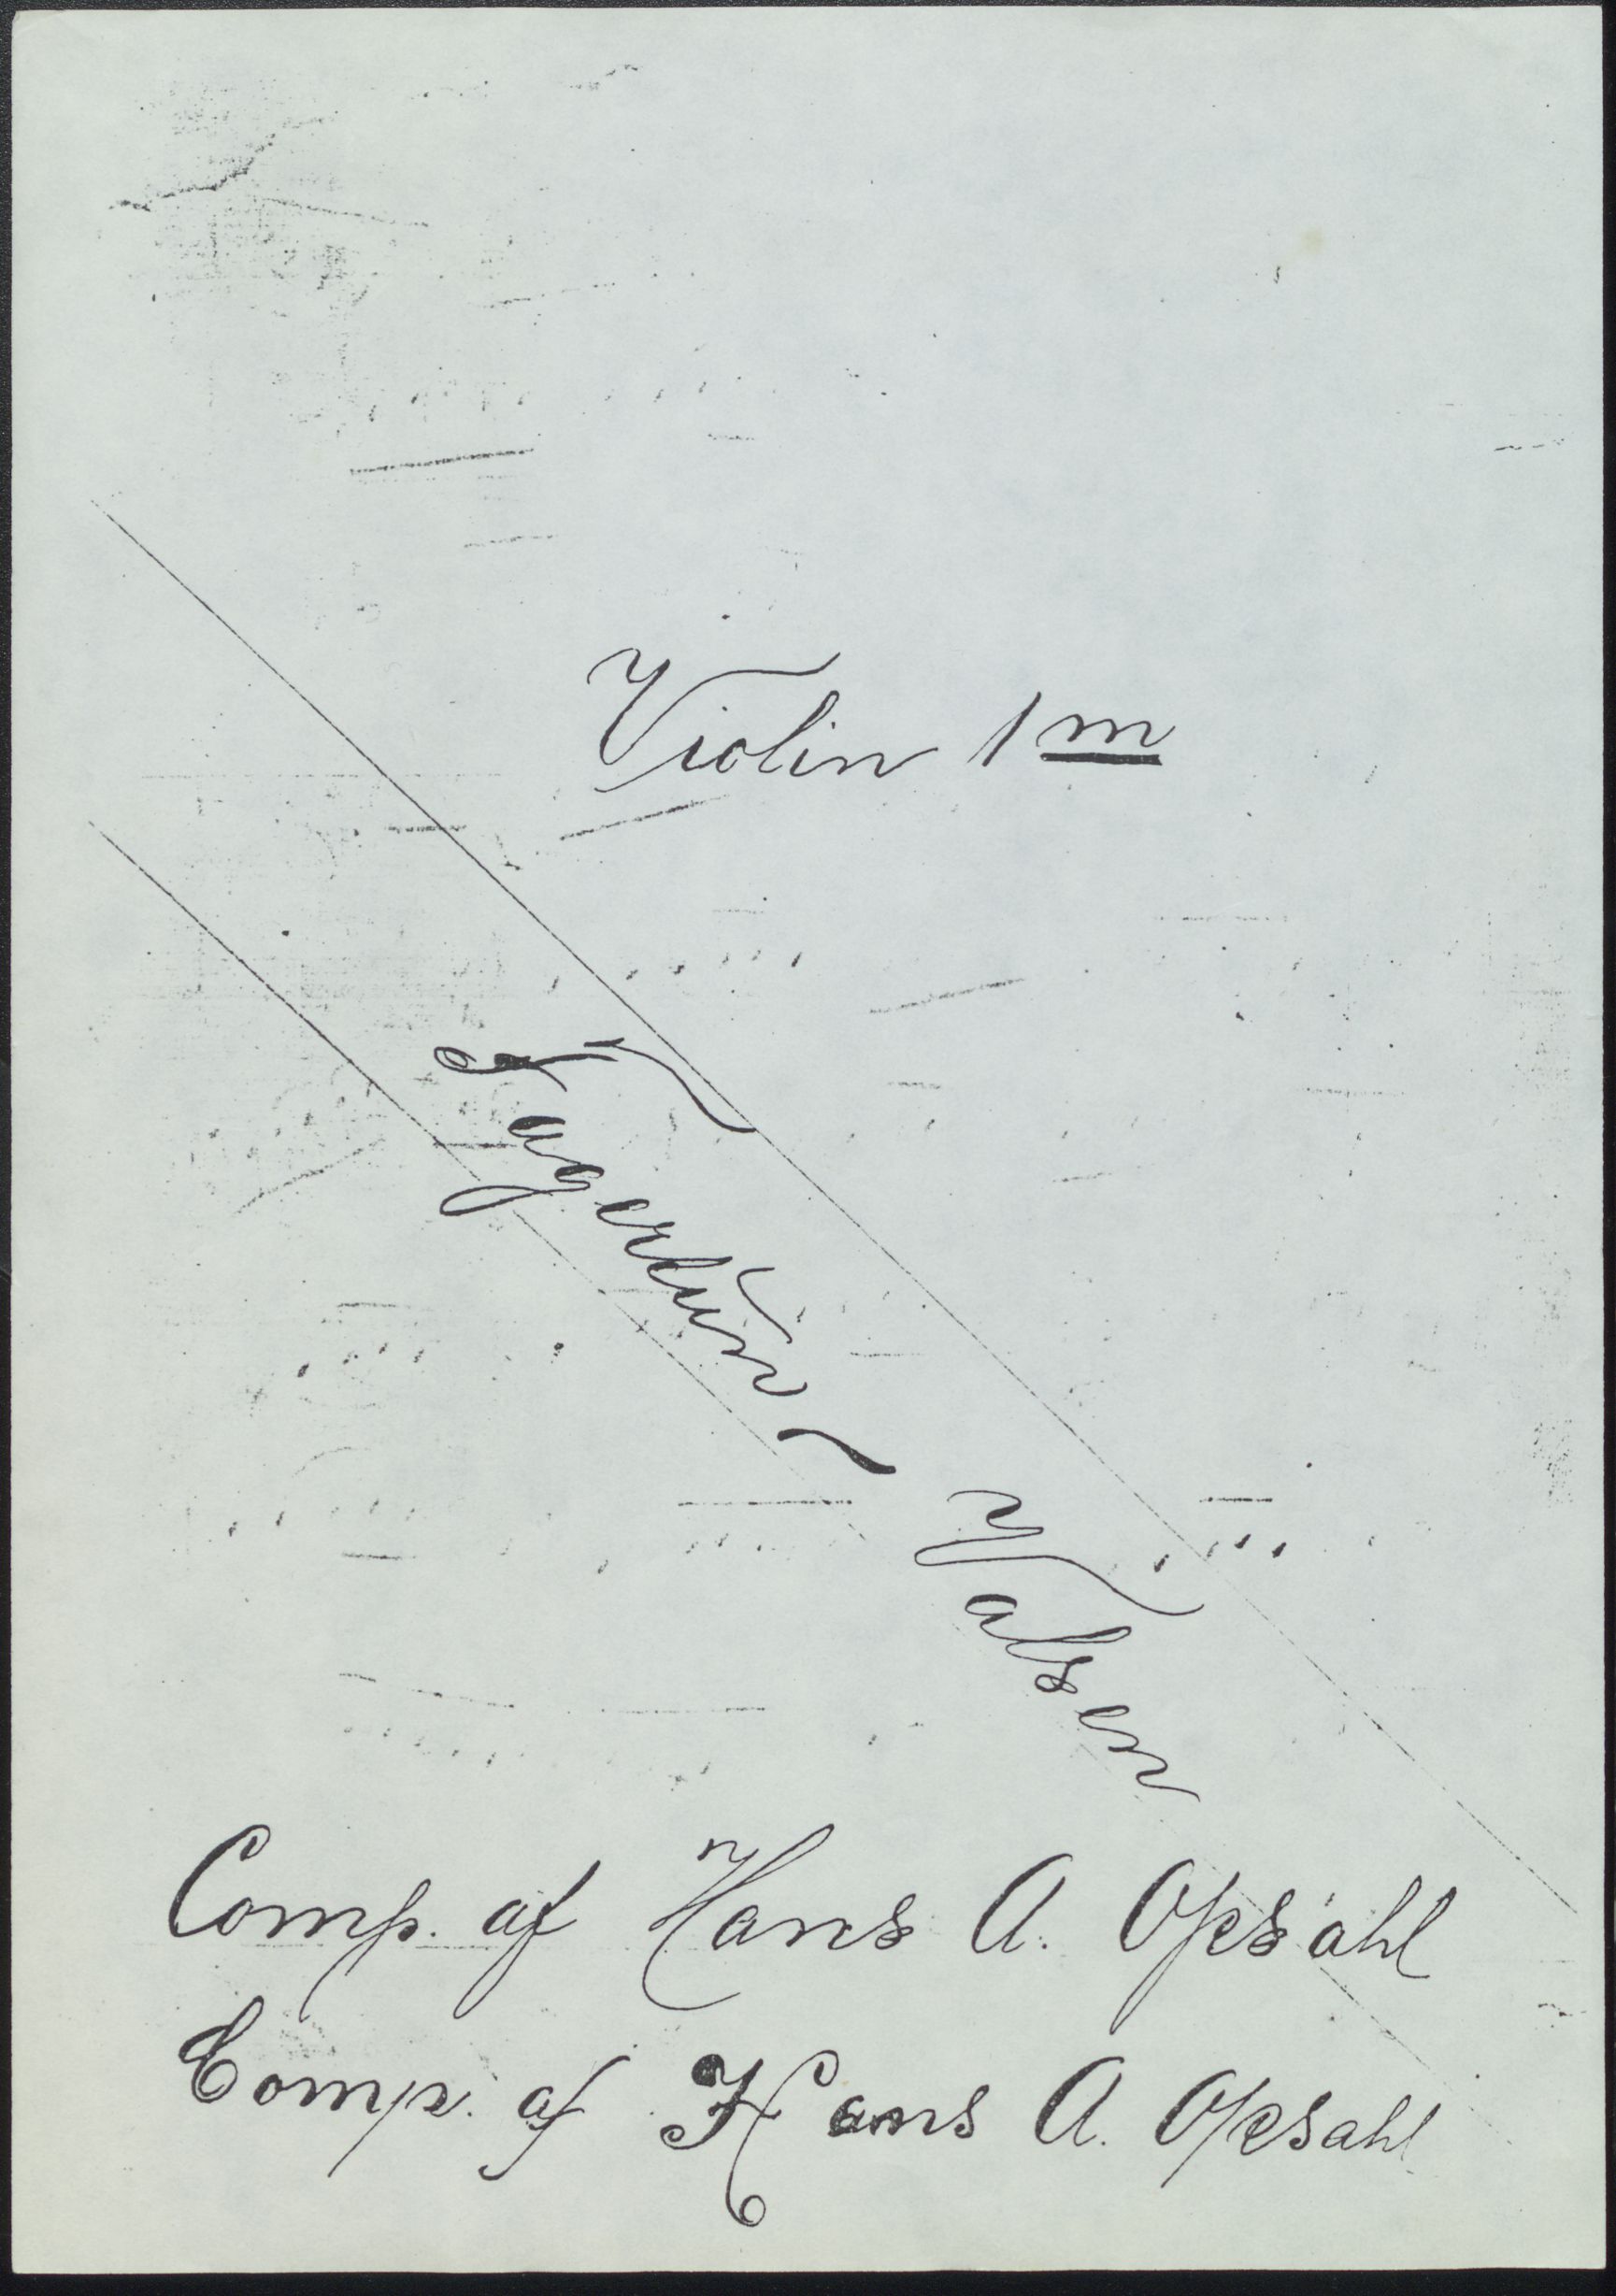 Violin 1m
Fagerlun - Valsen
Comp. af Hans A. Opsahl
Comp. af Hans A. Opsahl